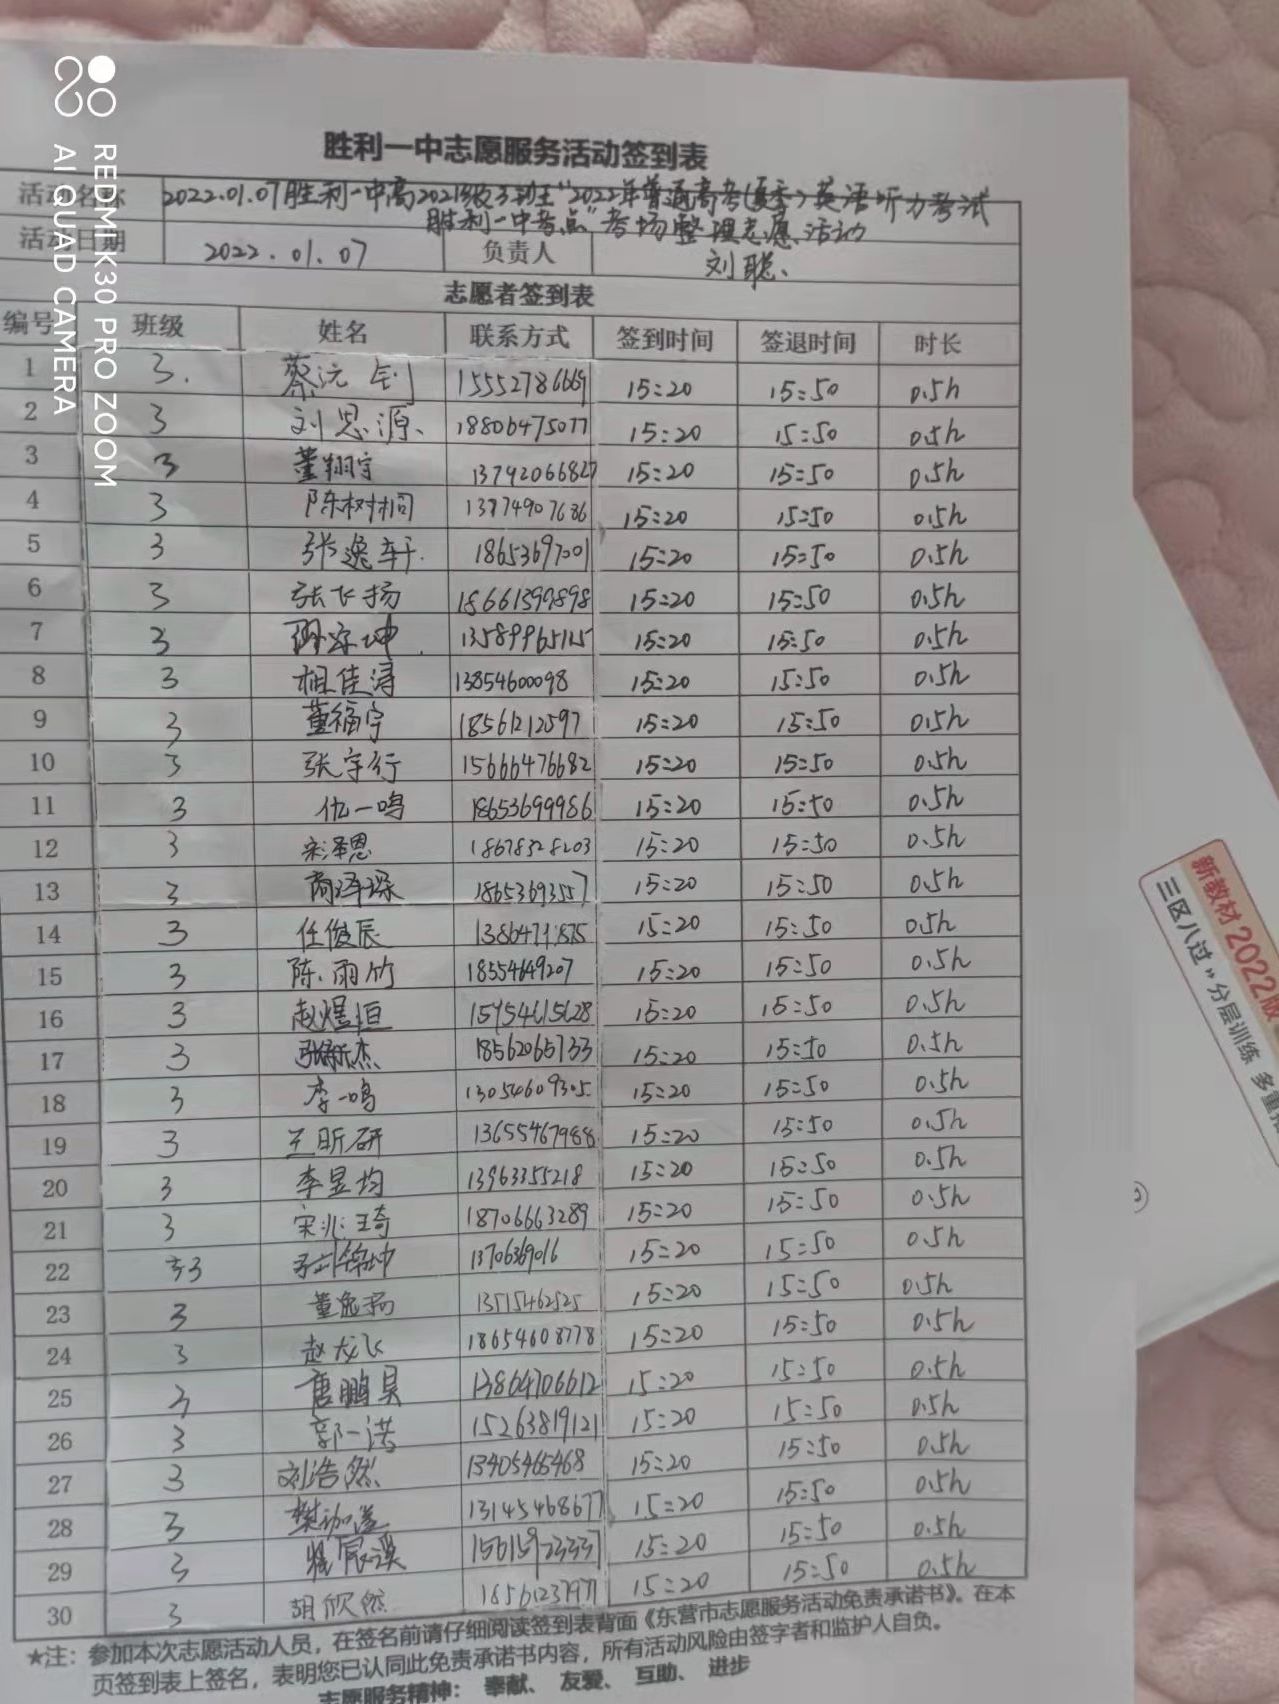 REDMI K30 PRO ZOOM
AI QUAD CAMERA
胜利一中志愿服务活动签到表
活动名称 2022.01.07胜利一中高2021级3班"2022年普通高考(夏季)英语听力考试
胜利一中考点"考场整理志愿活动
活动日期 2022.01.07 负责人 刘聪、
志愿者签到表
编号 班级 姓名 联系方式 签到时间 签退时间 时长
1 3. 蔡沅钊 15552786669 15:20 15:50 0.5h
2 3 刘思源、 18806475077 15:20 15:50 0.5h
3 3 董翔宇 13792066827 15:20 15:50 0.5h
4 3 陈树桐 13774907686 15:20 15:50 0.5h
5 3 张逸轩. 18653697001 15:20 15:50 0.5h
6 3 张飞扬 18661399898 15:20 15:50 0.5h
7 3 13589965125 15:20 15:50 0.5h
8 3 相佳浔 13854600098 15:20 15:50 0.5h
9 3 董福宇 18561212597 15:20 15:50 0.5h
10 3 张宇行 15666476682 15:20 15:50 0.5h
11 3 仇一鸣 18653699986 15:20 15:50 0.5h
12 3 宋泽恩 18678328203 15:20 15:50 0.5h
13 3 商泽琛 18653693557 15:20 15:50 0.5h
14 3 任俊辰 13864711875 15:20 15:50 0.5h
15 3 陈雨竹 18554649207 15:20 15:50 0.5h
16 3 赵煜恒 15954615628 15:20 15:50 0.5h
17 3 18562065733 15:20 15:50 0.5h
18 3 李一鸣 13054609305 15:20 15:50 0.5h
19 3 王昕研 13655467988 15:20 15:50 0.5h
20 3 李昱均 13963355218 15:20 15:50 0.5h
21 3 宋兆琦 18706663289 15:20 15:50 0.5h
22 3 13706369016 15:20 15:50 0.5h
23 3 董逸扬 13515462525 15:20 15:50 0.5h
24 3 赵龙飞 18654608778 15:20 15:50 0.5h
25 3 唐鹏昊 13864706612 15:20 15:50 0.5h
26 3 郭一诺 15263819121 15:20 15:50 0.5h
27 3 刘浩然 13405465468 15:20 15:50 0.5h
28 3 13145468677 15:20 15:50 0.5h
29 3 15:20 15:50 0.5h
30 3 胡欣然 18561237971 15:20 15:50 0.5h
★注：参加本次志愿活动人员，在签名前请仔细阅读签到表背面《东营市志愿服务活动免责承诺书》。在本
页签到表上签名，表明您已认同此免责承诺书内容，所有活动风险由签字者和监护人自负。
志愿服务精神：奉献、友爱、互助、进步
新教材2022版
三区八过"分层训练 多重